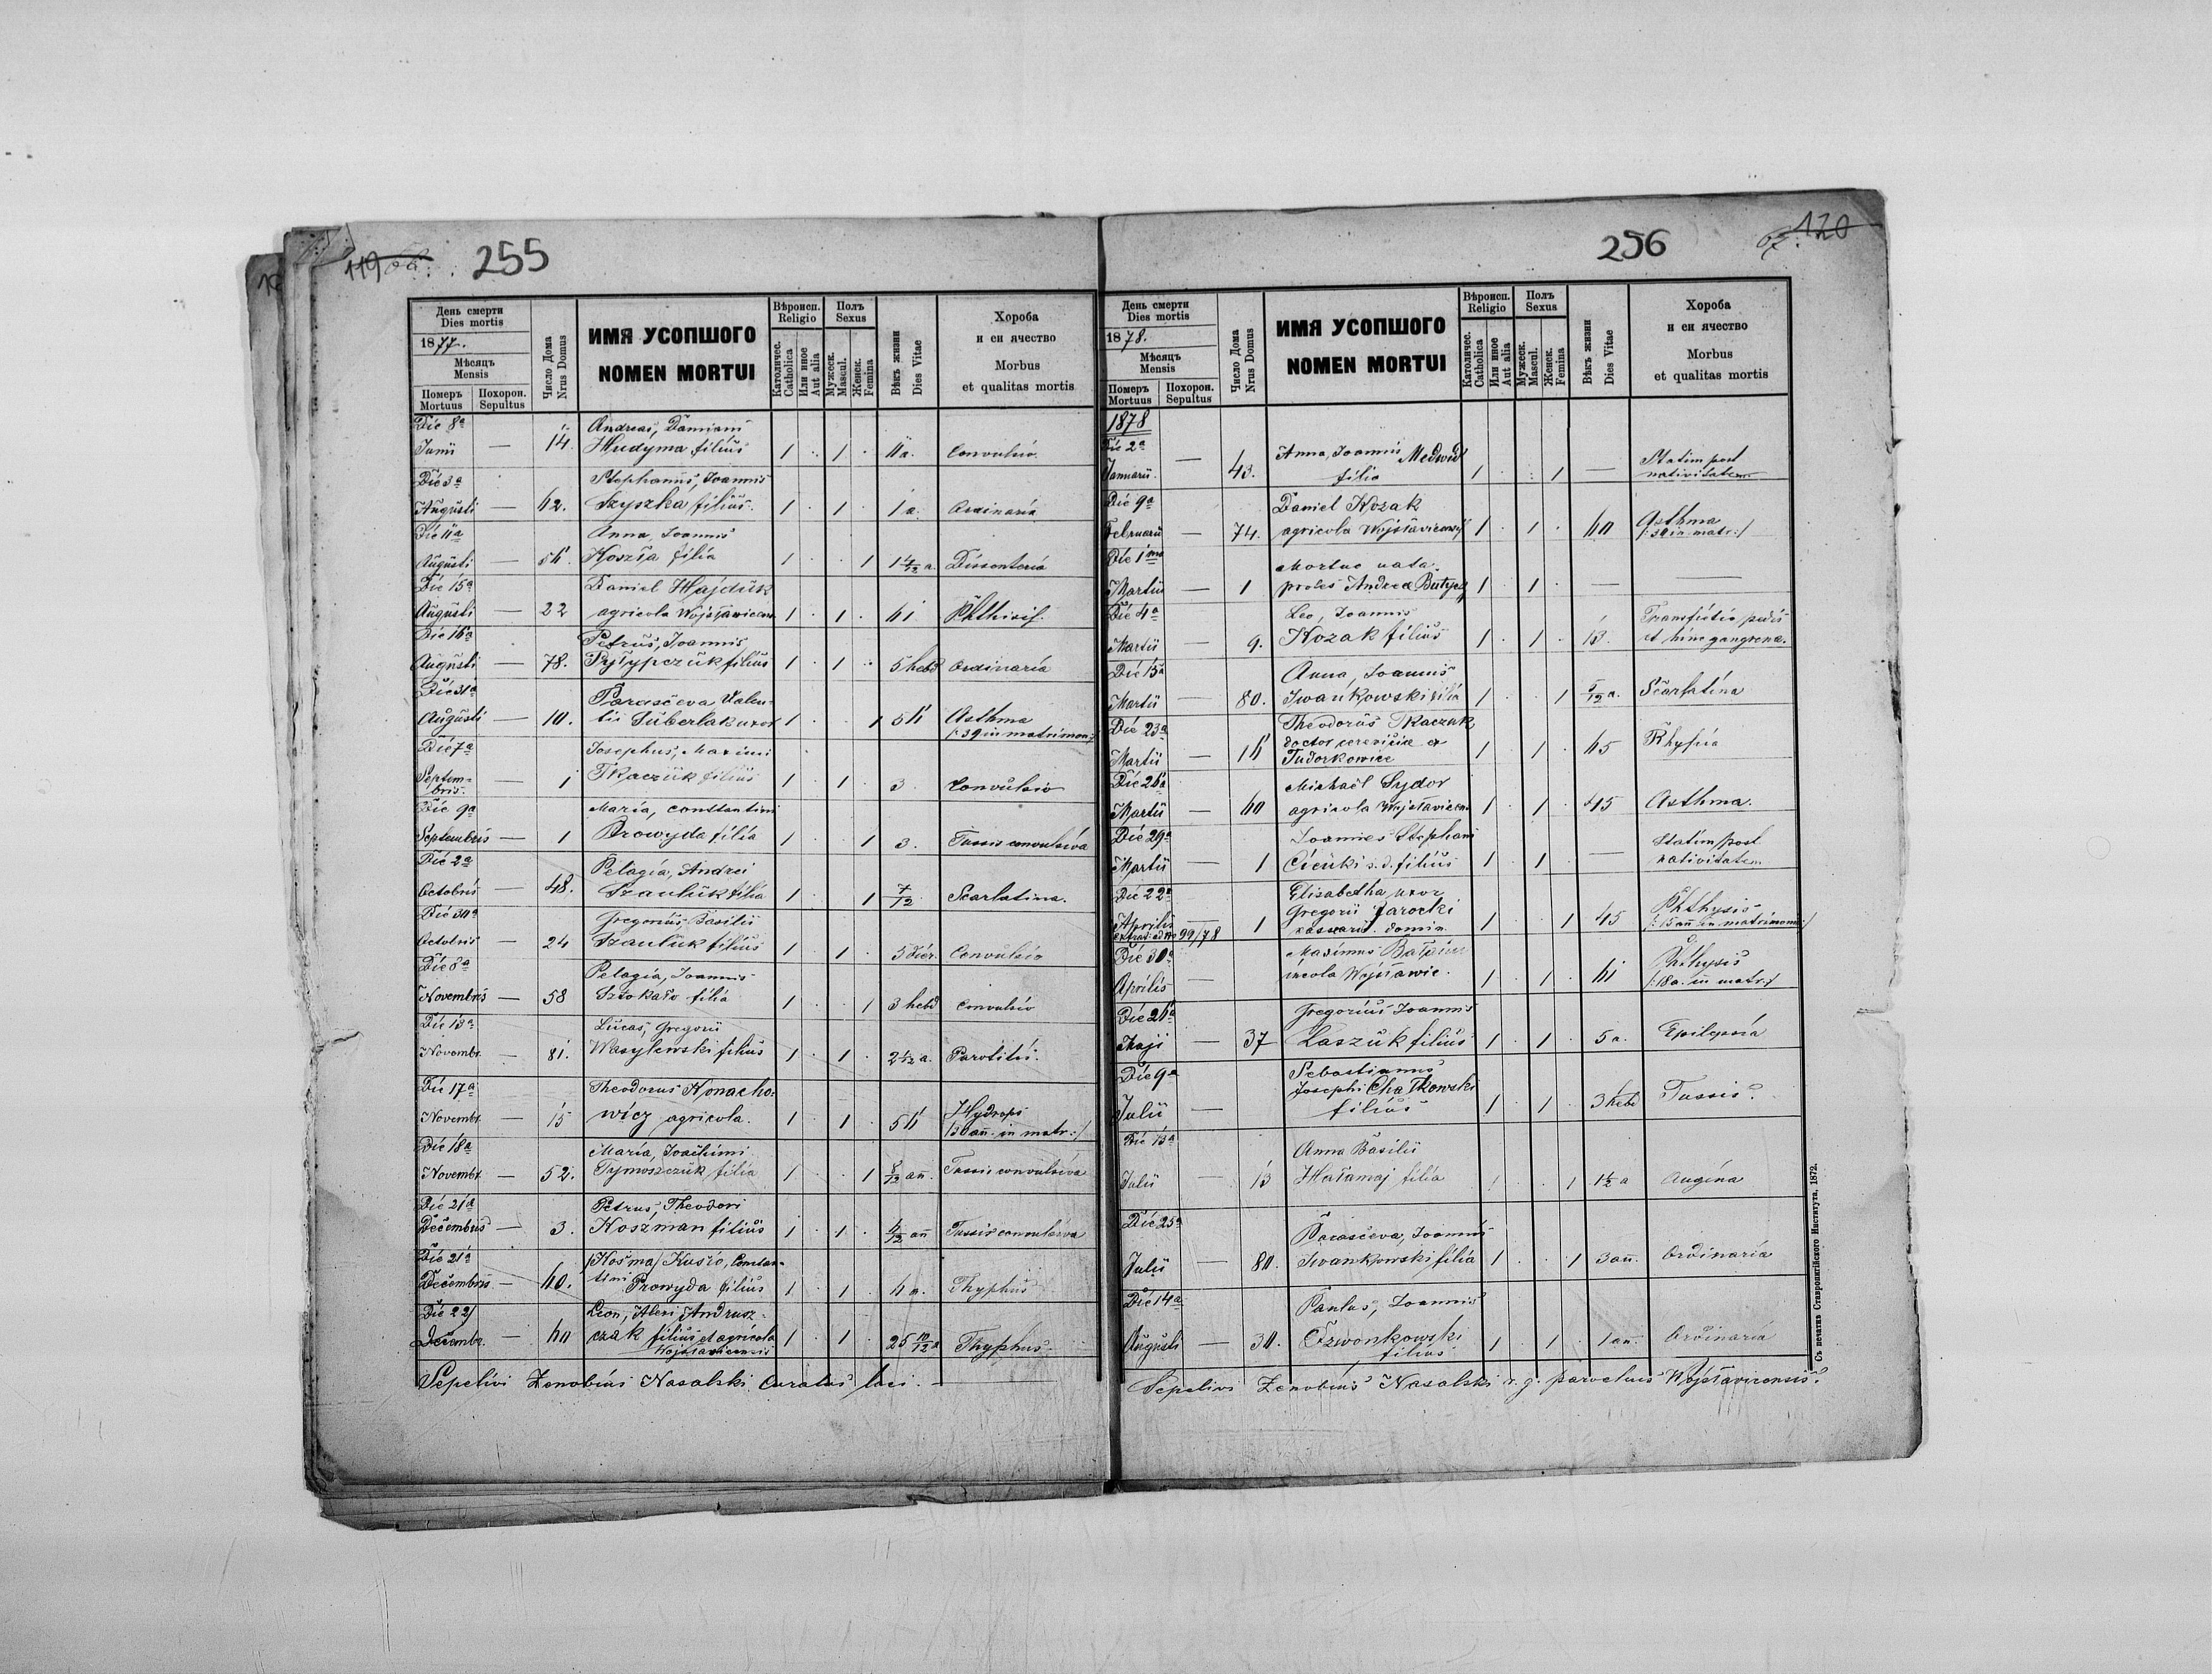 119
255
День смерти
Dies mortis
1877.
Мѣсяцъ
Mensis
Померъ
Mortuus
Похорон.
Sepultus
Число Дома
Nrus Domus
ИМЯ УСОПШОГО
NOMEN MORTUI
Вѣроисп.
Religio
Католичес.
Catholica
Или иное
Aut alia
Полъ
Sexus
Мужеск.
Mascul.
Женск.
Femina
Вѣкъ жизни
Dies Vitae
Хороба
и еи ячество
Morbus
et qualitas mortis
Die 8ª Andreas, Damiani
Junii — 14. Hudyma filius 1 . 1 . Convulsio
Die 3ª Stephanus, Joannis
Augusti — 62. Szyszka filius. 1 . 1 . 1 a. Ordinaria
Die 11ª Anna, Joannis
Augusti — Koszła filia 1 . . 1 Dissenteria
Die 15ª Daniel Hajduk
Augusti — 22 agricola 1 . 1 . 61 Phthisis.
Die 16ª Petrus, Joannis
Augusti — 78. Pylypczuk filius 1 . 1 . 5 hebd Ordinaria
Die 31ª Parasceva Valen-
Augusti — 10. tii Suberlak uxor 1 . . 1 56 Asthma
/:39 in matrimon:/
Die 7ª Josephus, Maximi
Septem- — 1 Tkaczuk filius 1 . 1 . 3. Convulsio
bris.
Die 9ª Maria, Constantini
Septembris — 1 Prowyda filia 1 . . 1 3. Tussis convulsiva
Die 2ª Pelagia, Andrei
Octobris — 48. Szauluk filia 1 . . 1 7/12 Scarlatina.
Die 30ª Gregorius, Basilii
Octobris — 24 Szauluk filius 1 . 1 . 5 dier. Convulsio
Die 8ª Pelagia, Joannis
Novembris — 58 Sztokało filia 1 . . 1 3 hebd Convulsio
Die 13ª Lucas, Gregorii
Novembr. — 81. Wasylewski filius 1 . 1 . Parotitis.
Die 17ª Theodorus
Novembr. — 15 wicz agricola. 1 . 1 . 56 Hydrops
/30 ann. in matr:/
Die 18ª Maria, Joachimi
Novembr. — 52. Tymoszczuk filia 1 . . 1 8/12 an. Tussis convulsiva
Die 21ª Petrus, Theodori
Decembris — 3. Koszman filius 1 . 1 . Tussis convulsiva
Die 21ª /Kosma/ Kuśio, Constan-
Decembris — 60. tini Prowyda filius 1 . 1 . Thyphus
Die 22 Leon, Andrusz-
Decembr. — 60 czak filius et agricola 1 . 1 . 25 10/12 a Thyphus
Wojsławicensis
Sepelivi Zenobius Nasalski Curatus loci.
256
120
67.
День смерти
Dies mortis
1878.
Мѣсяцъ
Mensis
Померъ
Mortuus
Похорон.
Sepultus
Число Дома
Nrus Domus
ИМЯ УСОПШОГО
NOMEN MORTUI
Вѣроисп.
Religio
Католичес.
Catholica
Или иное
Aut alia
Полъ
Sexus
Мужеск.
Mascul.
Женск.
Femina
Вѣкъ жизни
Dies Vitae
Хороба
и еи ячество
Morbus
et qualitas mortis
1878
Die 2ª Anna, Joannis Medwid Statim post
Januarii — 43. filia 1 . . 1 — nativitatem
Die 9ª Daniel Kozak
Februarii — 74. agricola 1 . 1 . 60 Asthma
/:39 in matr:/
Die 1ma Mortuo nata
Martii — 1 proles Andreae 1 . 1 . — —
Die 4ª Leo, Joannis Transfictio pedis
Martii — 9. Kozak filius 1 . 1 . 13. et hinc gangrena.
Die 15ª Anna, Joannis
Martii — 80. Iwankowski filia 1 . . 1 5/12 a. Scarlatina
Die 23ª Theodorus Tkaczuk
Martii — 16 coctor cerevisiae ex 1 . 1 . 65
Tudorkowice
Die 26ª Michaël Sydor
Martii — 60 agricola 1 . 1 . 45 Asthma.
Die 29ª Joannes Stephani Statim post
Martii — 1 filius 1 . 1 . — nativitatem
Die 22ª Elisabetha uxor
Aprilis — 1 Gregorii Jarocki 1 . . 1 45 Phthysis
99/78 domin. /:15 ann in matrimonio:/
Die 30ª Maximus
Aprilis — incola Wojsławic. 1 . 1 . 61 Phthysis
/:18 a. in matr:/
Die 26ª Gregorius Joannis
Maji — 37 Laszuk filius 1 . 1 . 5 a. Epilepsia
Die 9ª Sebastianus
Julii — Josephi Chałkowski 1 . 1 . 3 hebd Tussis.
filius
Die 13ª Anna Basilii
Julii — 13 Hałamaj filia 1 . . 1 1½ a Angina
Die 25ª Parasceva, Joannis
Julii — 80. Iwankowski filia 1 . . 1 3 ann. Ordinaria
Die 14ª Paulus, Joannis
Augusti — 30. Dzwonkowski 1 . 1 . 1 an. Ordinaria
filius
Sepelivi Zenobius Nasalski r. g. parochus Wojsławicensis.
Съ печатнѣ Ставропигійского Института, 1872.